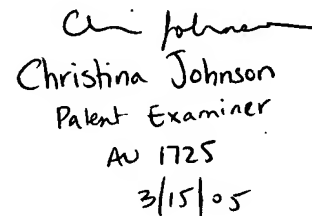 Chri Johnson
Christina Johnson
Patent Examiner
AU 1725
3/15/05